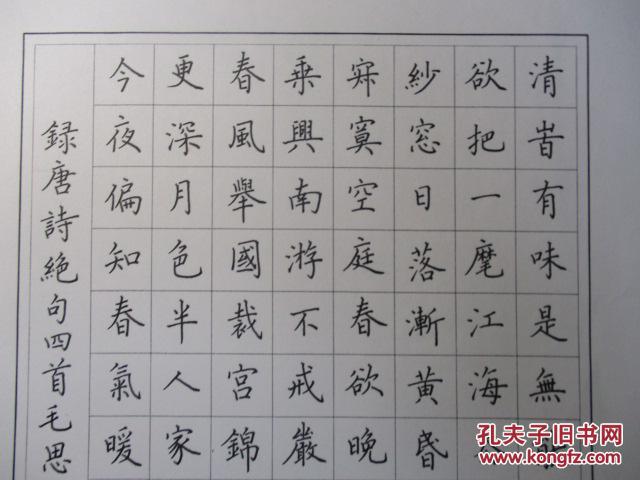 清旹有味是無
欲把一麾江海
紗窓日落漸黄昬
寂寞空庭春欲晚
乗興南游不戒嚴
春風舉國裁宮錦
更深月色半人家
今夜偏知春氣暖
録唐詩絶句四首毛思
孔夫子旧书网
www.kongfz.com